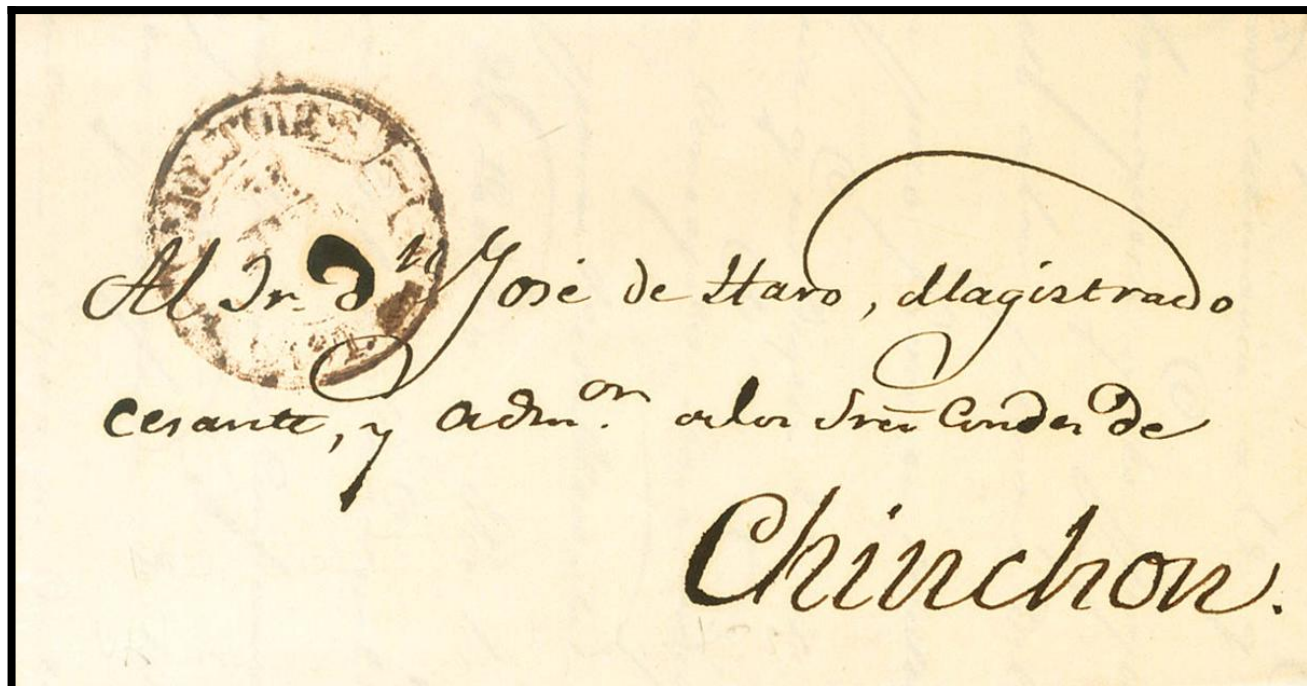 Al Sr. Dn José de Haro, Magistrado
cesante, y admon. de los Sres Condes de
Chinchon.